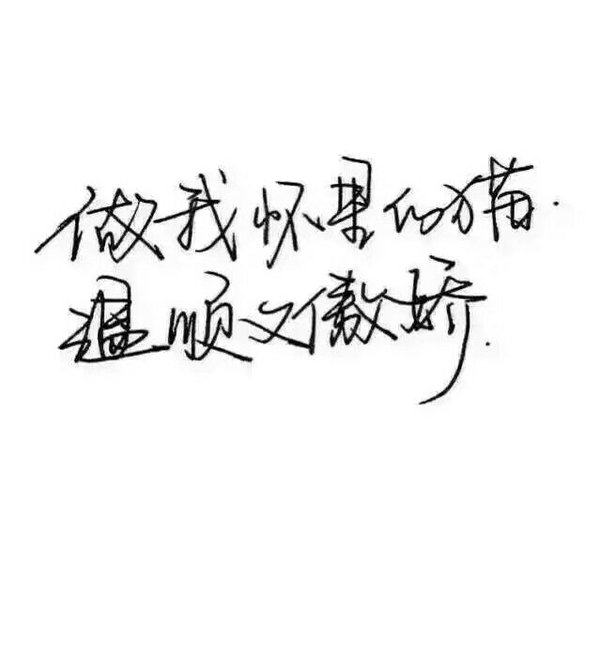 做我怀里的猫.
温顺又傲娇.